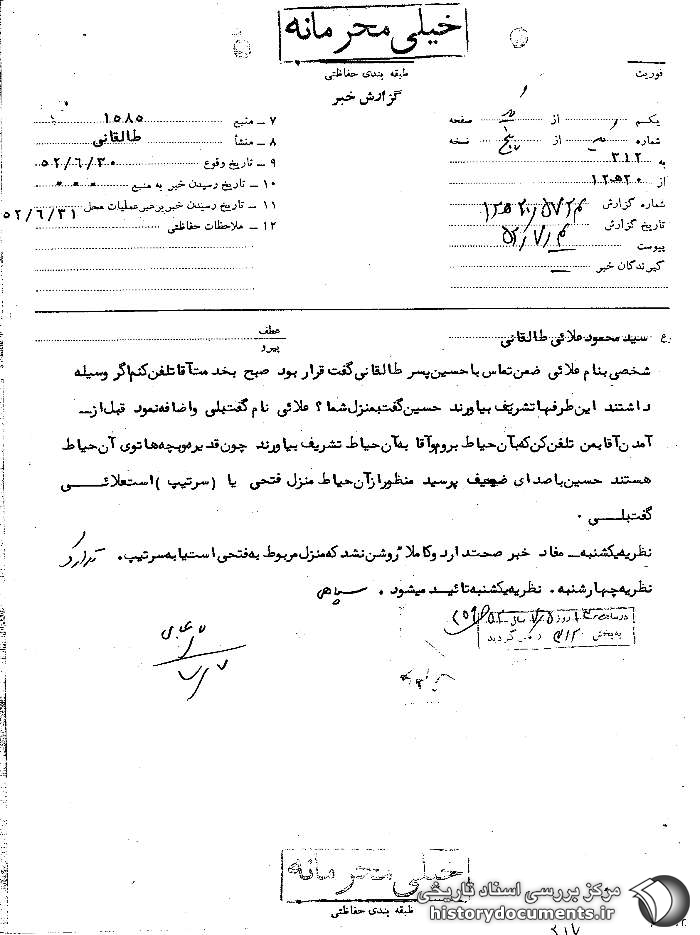 خیلی محرمانه
طبقه بندی حفاظتی
گزارش خبر
فوریت
یکم از صفحه
شماره از پنج نسخه
به ۳۱۲
از ۱۲ﻫ۲۰
شماره گزارش
تاریخ گزارش ۵۲/۷/۴
پیوست
گیرندگان خبر —
۷ – منبع ۱۵۸۵
۸ – منشأ طالقانی
۹ – تاریخ وقوع ۵۲/۶/۳۰
۱۰ – تاریخ رسیدن خبر به منبع ۰ ۰ ۰
۱۱ – تاریخ رسیدن خبر برهبر عملیات محل ۵۲/۶/۳۱
۱۲ – ملاحظات حفاظتی
سید محمود علائی طالقانی
عطف
پیرو
شخصی بنام علائی ضمن تماس با حسین پسر طالقانی گفت قرار بود صبح بخدمت آقا تلفن کنم اگر وسیله
داشتند این طرفها تشریف بیاورند حسین گفت بمنزل شما ؟ علائی نام گفت بلی و اضافه نمود قبل از
آمدن آقا بمن تلفن کن که بآن حیاط بروم و آقا به آن حیاط تشریف بیاورند چون قدیر و بچه ها توی آن حیاط
هستند حسین با صدای ضعیف پرسید منظور از آن حیاط منزل فتحی یا (سرتیپ) است علائی
گفت بلی .
نظریه یکشنبه – مفاد خبر صحت دارد و کاملا روشن نشد که منزل مربوط به فتحی است یا به سرتیپ.
نظریه چهارشنبه . نظریه یکشنبه تائید میشود . سپاهی
در ساعت روز ۷/۵ سال ۵۲
به بخش ۳۱۲ گردید
۷/۷
خیلی محرمانه
طبقه بندی حفاظتی
مرکز بررسی اسناد تاریخی
historydocuments.ir
۳۱۲